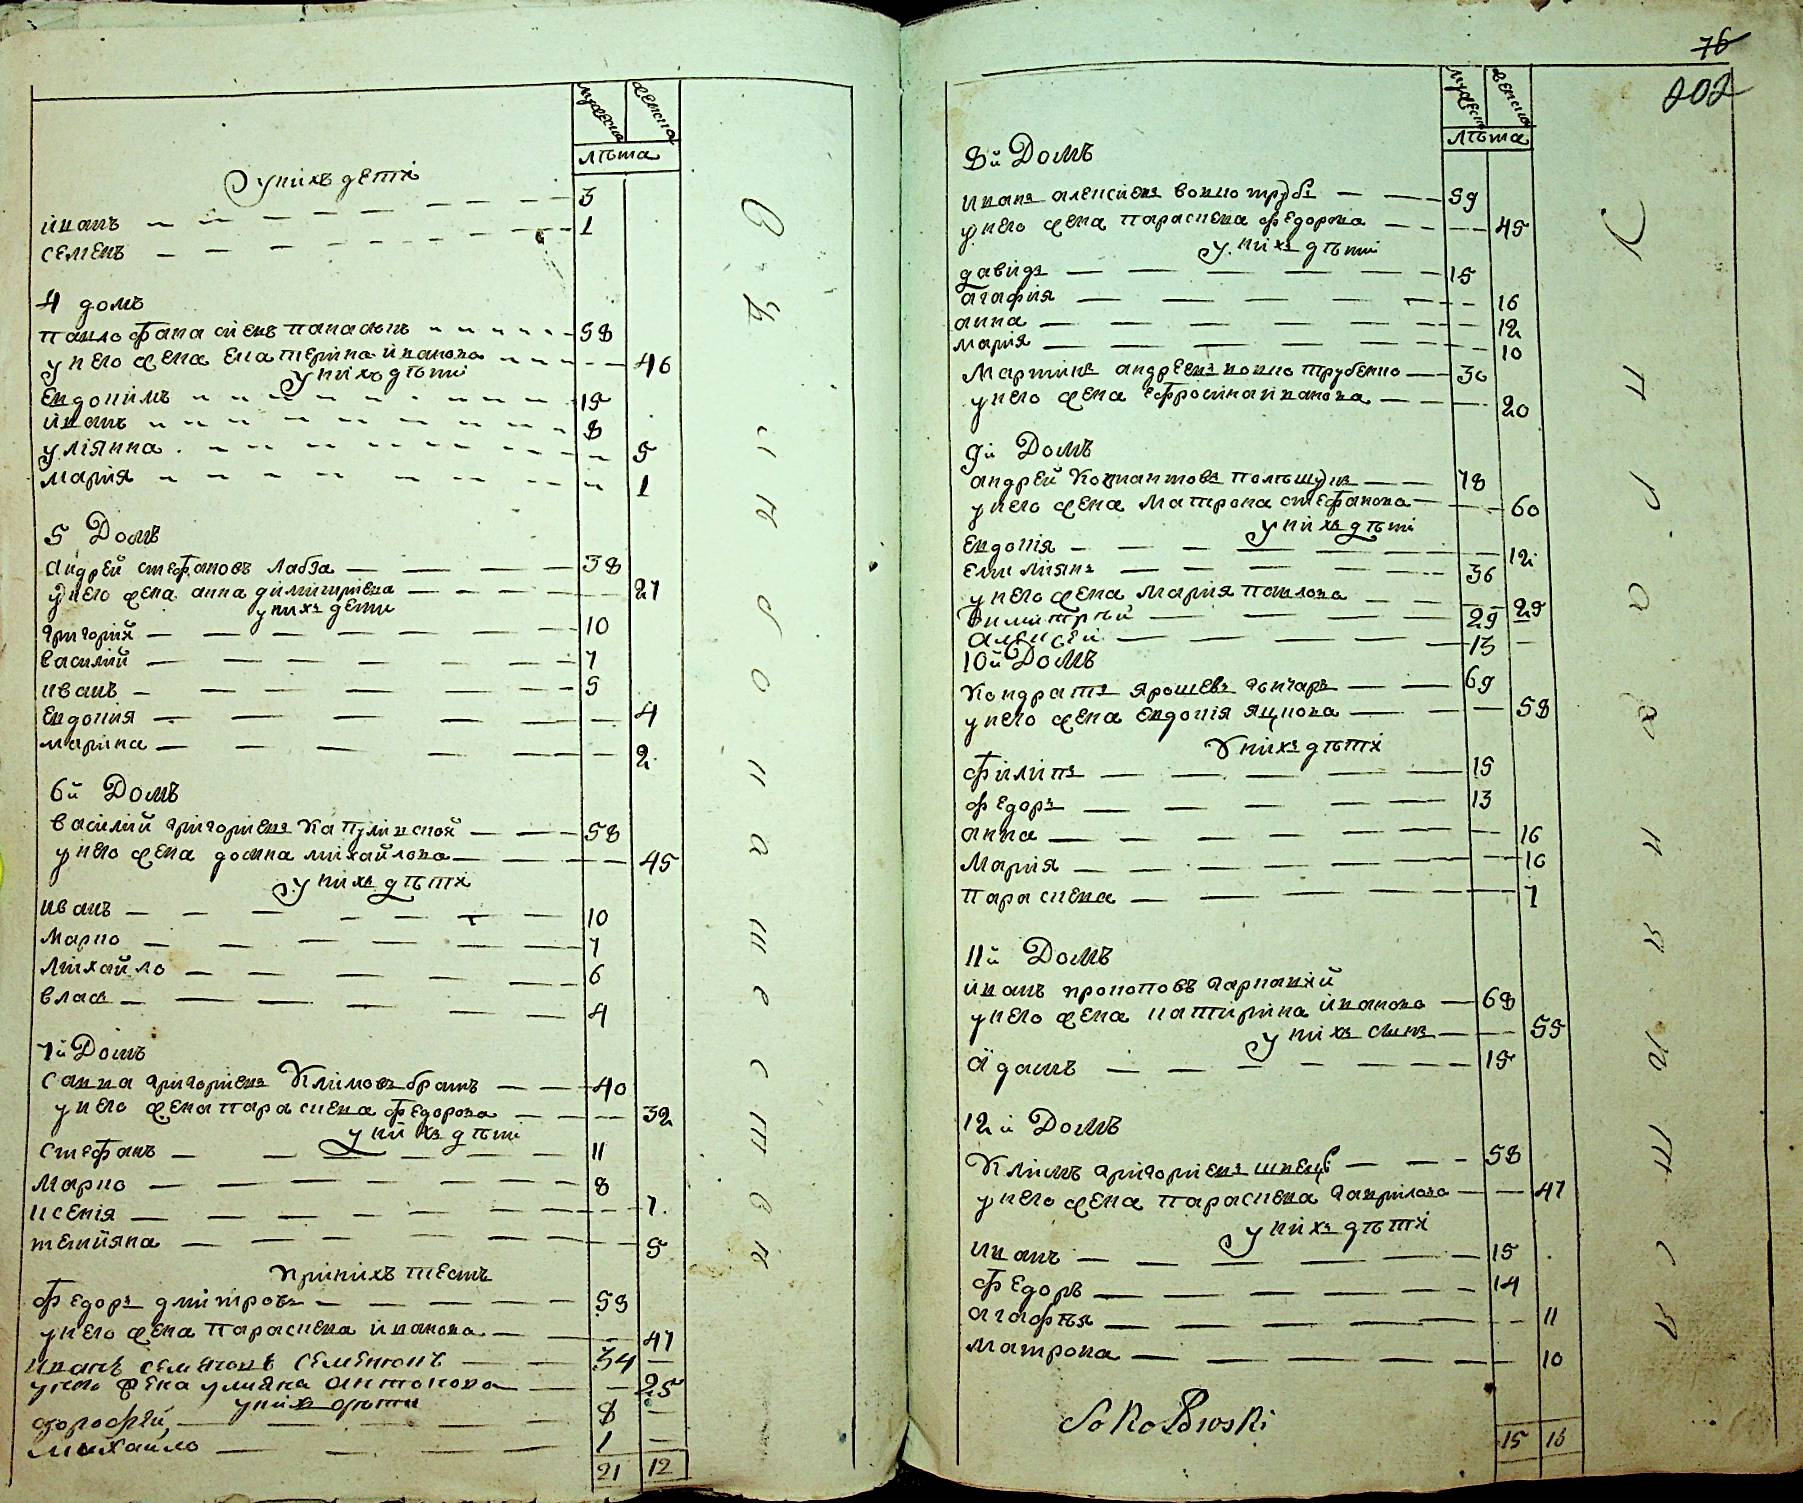 мужеска женска
лѣта
У нихъ дети
иванъ 3
семенъ 1
4 домъ
58
у него жена екатерина иванова 46
у нихъ дѣти
Евдокимъ 15
иванъ 8
улиянна 5
мария 1
5 Домъ
андрей стефановъ лабза 38
у него жена анна димитриева 27
у нихъ дети
григорий 10
василий 7
иванъ 5
Евдокия 4
марина 2
6й Домъ
василий григориевъ 58
у него жена домна михайлова 45
у нихъ дѣти
иванъ 10
марко 7
михайло 6
влас 4
7й Домъ
савка григориевъ Климовъ братъ 40
у него жена параскева федорова 32
у нихъ дѣти
стефанъ 11
марко 8
ксения 7
темияна 5
при нихъ тесть
федоръ дмитровъ 58
у него жена параскева иванова 47
иванъ семеновъ 34
у него жена улияна антонова 25
у нихъ дѣти
дорофей 8
михайло 1
21 12
76
202
мужеска женска
лѣта
8й Домъ
иванъ алексиевъ 59
у него жена параскева федорова 45
у нихъ дѣти
давидъ 15
агафия 16
анна 12
мария 10
Мартинъ андреевъ 30
у него жена Ефросина иванова 20
9й Домъ
андрей 78
у него жена матрона стефанова 60
у нихъ дѣти
Евдокия 12
Емилиянъ 36
у него жена мария павлова 25
Димитрий 29
Алексей 13
10й Домъ
Кондратъ ярошевъ гончаръ 69
у него жена Евдокия яцкова 58
У нихъ дѣти
филипъ 15
федоръ 13
анна 16
мария 10
параскева 7
11й Домъ
иванъ прокоповъ
у него жена катирина иванова 68 55
у нихъ синъ
адамъ 15
12й Домъ
Климъ григориевъ швецъ 58
у него жена параскева гаврилова 47
у нихъ дѣти
иванъ 15
федоръ 14
агафия 11
матрона 10
Sokolowski
15 16